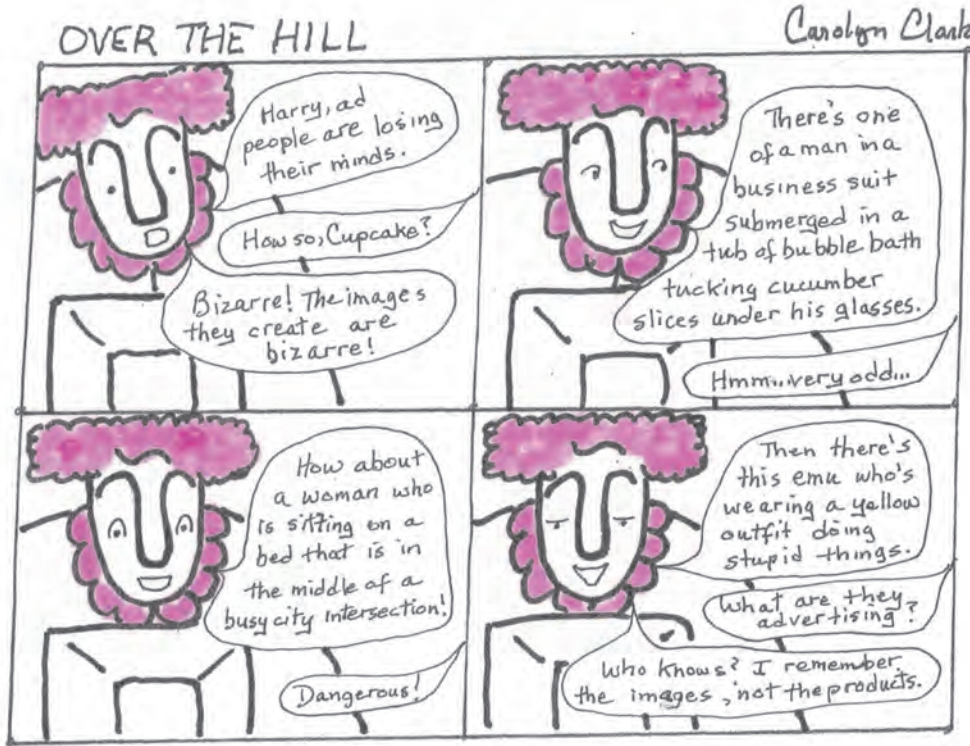 OVER THE HILL
Carolyn Clark
Harry, ad
people are losing
their minds.
How so, Cupcake?
Bizarre! The images
they create are
bizarre!
There's one
of a man in a
business suit
submerged in a
tub of bubble bath
tucking cucumber
slices under his glasses.
Hmm...very odd...
How about
a woman who
is sitting on a
bed that is in
the middle of a
busy city intersection!
Dangerous!
Then there's
this emu who's
wearing a yellow
outfit doing
stupid things.
What are they
advertising?
Who knows? I remember
the images, not the products.